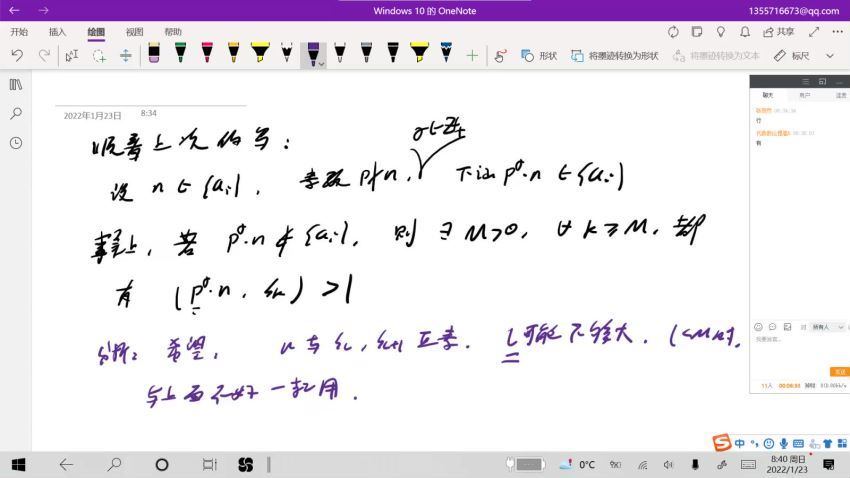 Windows 10 的 OneNote
1355716673@qq.com
开始 插入 绘图 视图 帮助
共享
形状 将墨迹转换为形状 将墨迹转换为文本 标尺
2022年1月23日 8:34
顺着上次的写:
设 n∈{aᵢ}, 素数 p∤n, σ∈Z₊ 下证 p^σ·n∈{aᵢ}
事实上, 若 p^σ·n∉{aᵢ}, 则 ∃ M>0, ∀ k≥M, 都
有 (p^σ·n, ) >1
分析: 希望, n与 , 互素. l可能不够大. (<M时),
与上面不好一起用.
聊天 用户
行
有
所有人
发送
11人
0°C
中
8:40 周日
2022/1/23